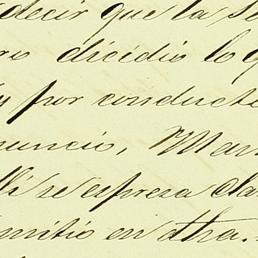 decir que la se
ro decidió lo q
s por conducto
nuncio, Man
lli se espresa cla
mitio en dha.